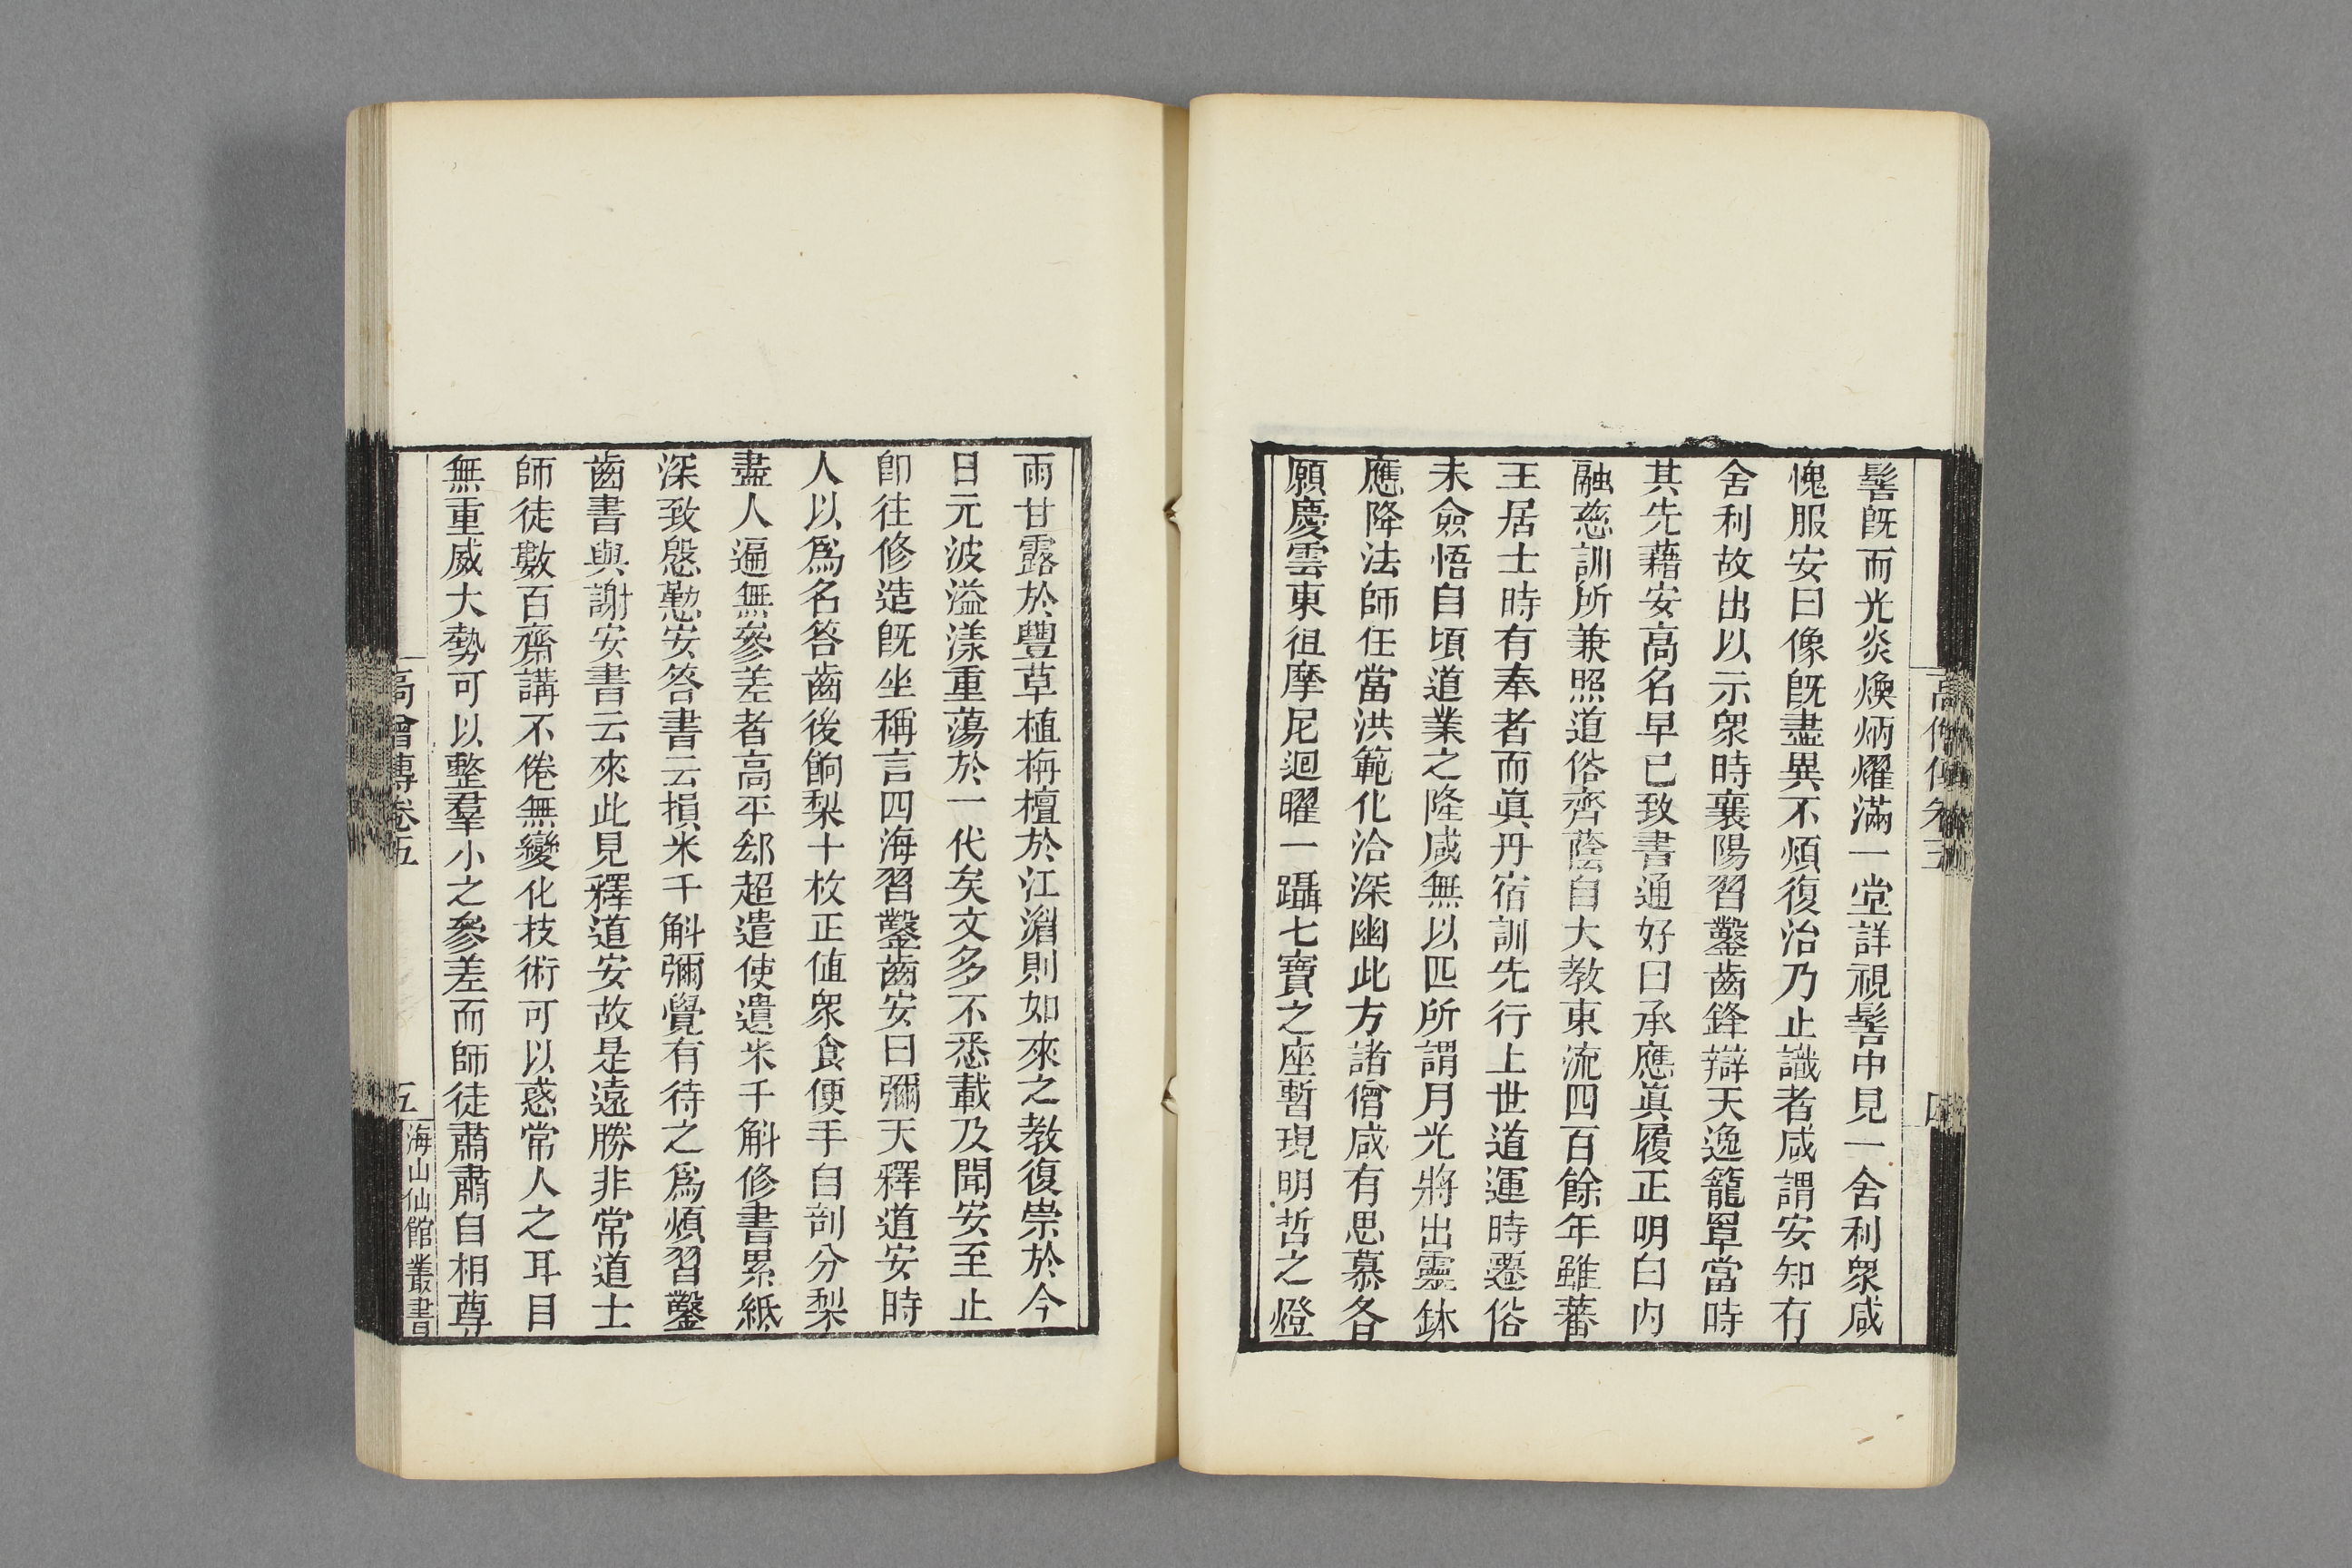 髻旣而光炎煥炳耀滿一堂詳視髻中見一舍利衆咸
愧服安曰像旣盡異不煩復治乃止識者咸謂安知有
舍利故出以示衆時襄陽習鑿齒鋒辯天逸籠罩當時
其先藉安高名早已致書通好曰承應眞履正明白內
融慈訓所兼照道俗齊蔭自大教東流四百餘年雖蕃
王居士時有奉者而眞丹宿訓先行上世道運時遷俗
未僉悟自頃道業之隆咸無以匹所謂月光將出靈鉢
應降法師任當洪範化洽深幽此方諸僧咸有思慕各
願慶雲東徂摩尼迴曜一躡七寶之座暫現明哲之燈
雨甘露於豐草植栴檀於江湄則如來之教復崇於今
日元波溢漾重蕩於一代矣文多不悉載及聞安至止
卽往修造旣坐稱言四海習鑿齒安曰彌天釋道安時
人以爲名答齒後餉梨十枚正值衆食便手自剖分梨
盡人遍無參差者高平郄超遣使遺米千斛修書累紙
深致慇懃安答書云損米千斛彌覺有待之爲煩習鑿
齒書與謝安書云來此見釋道安故是遠勝非常道士
師徒數百齋講不倦無變化技術可以惑常人之耳目
無重威大勢可以整羣小之參差而師徒肅肅自相尊
高僧傳卷五
五
海山仙館叢書